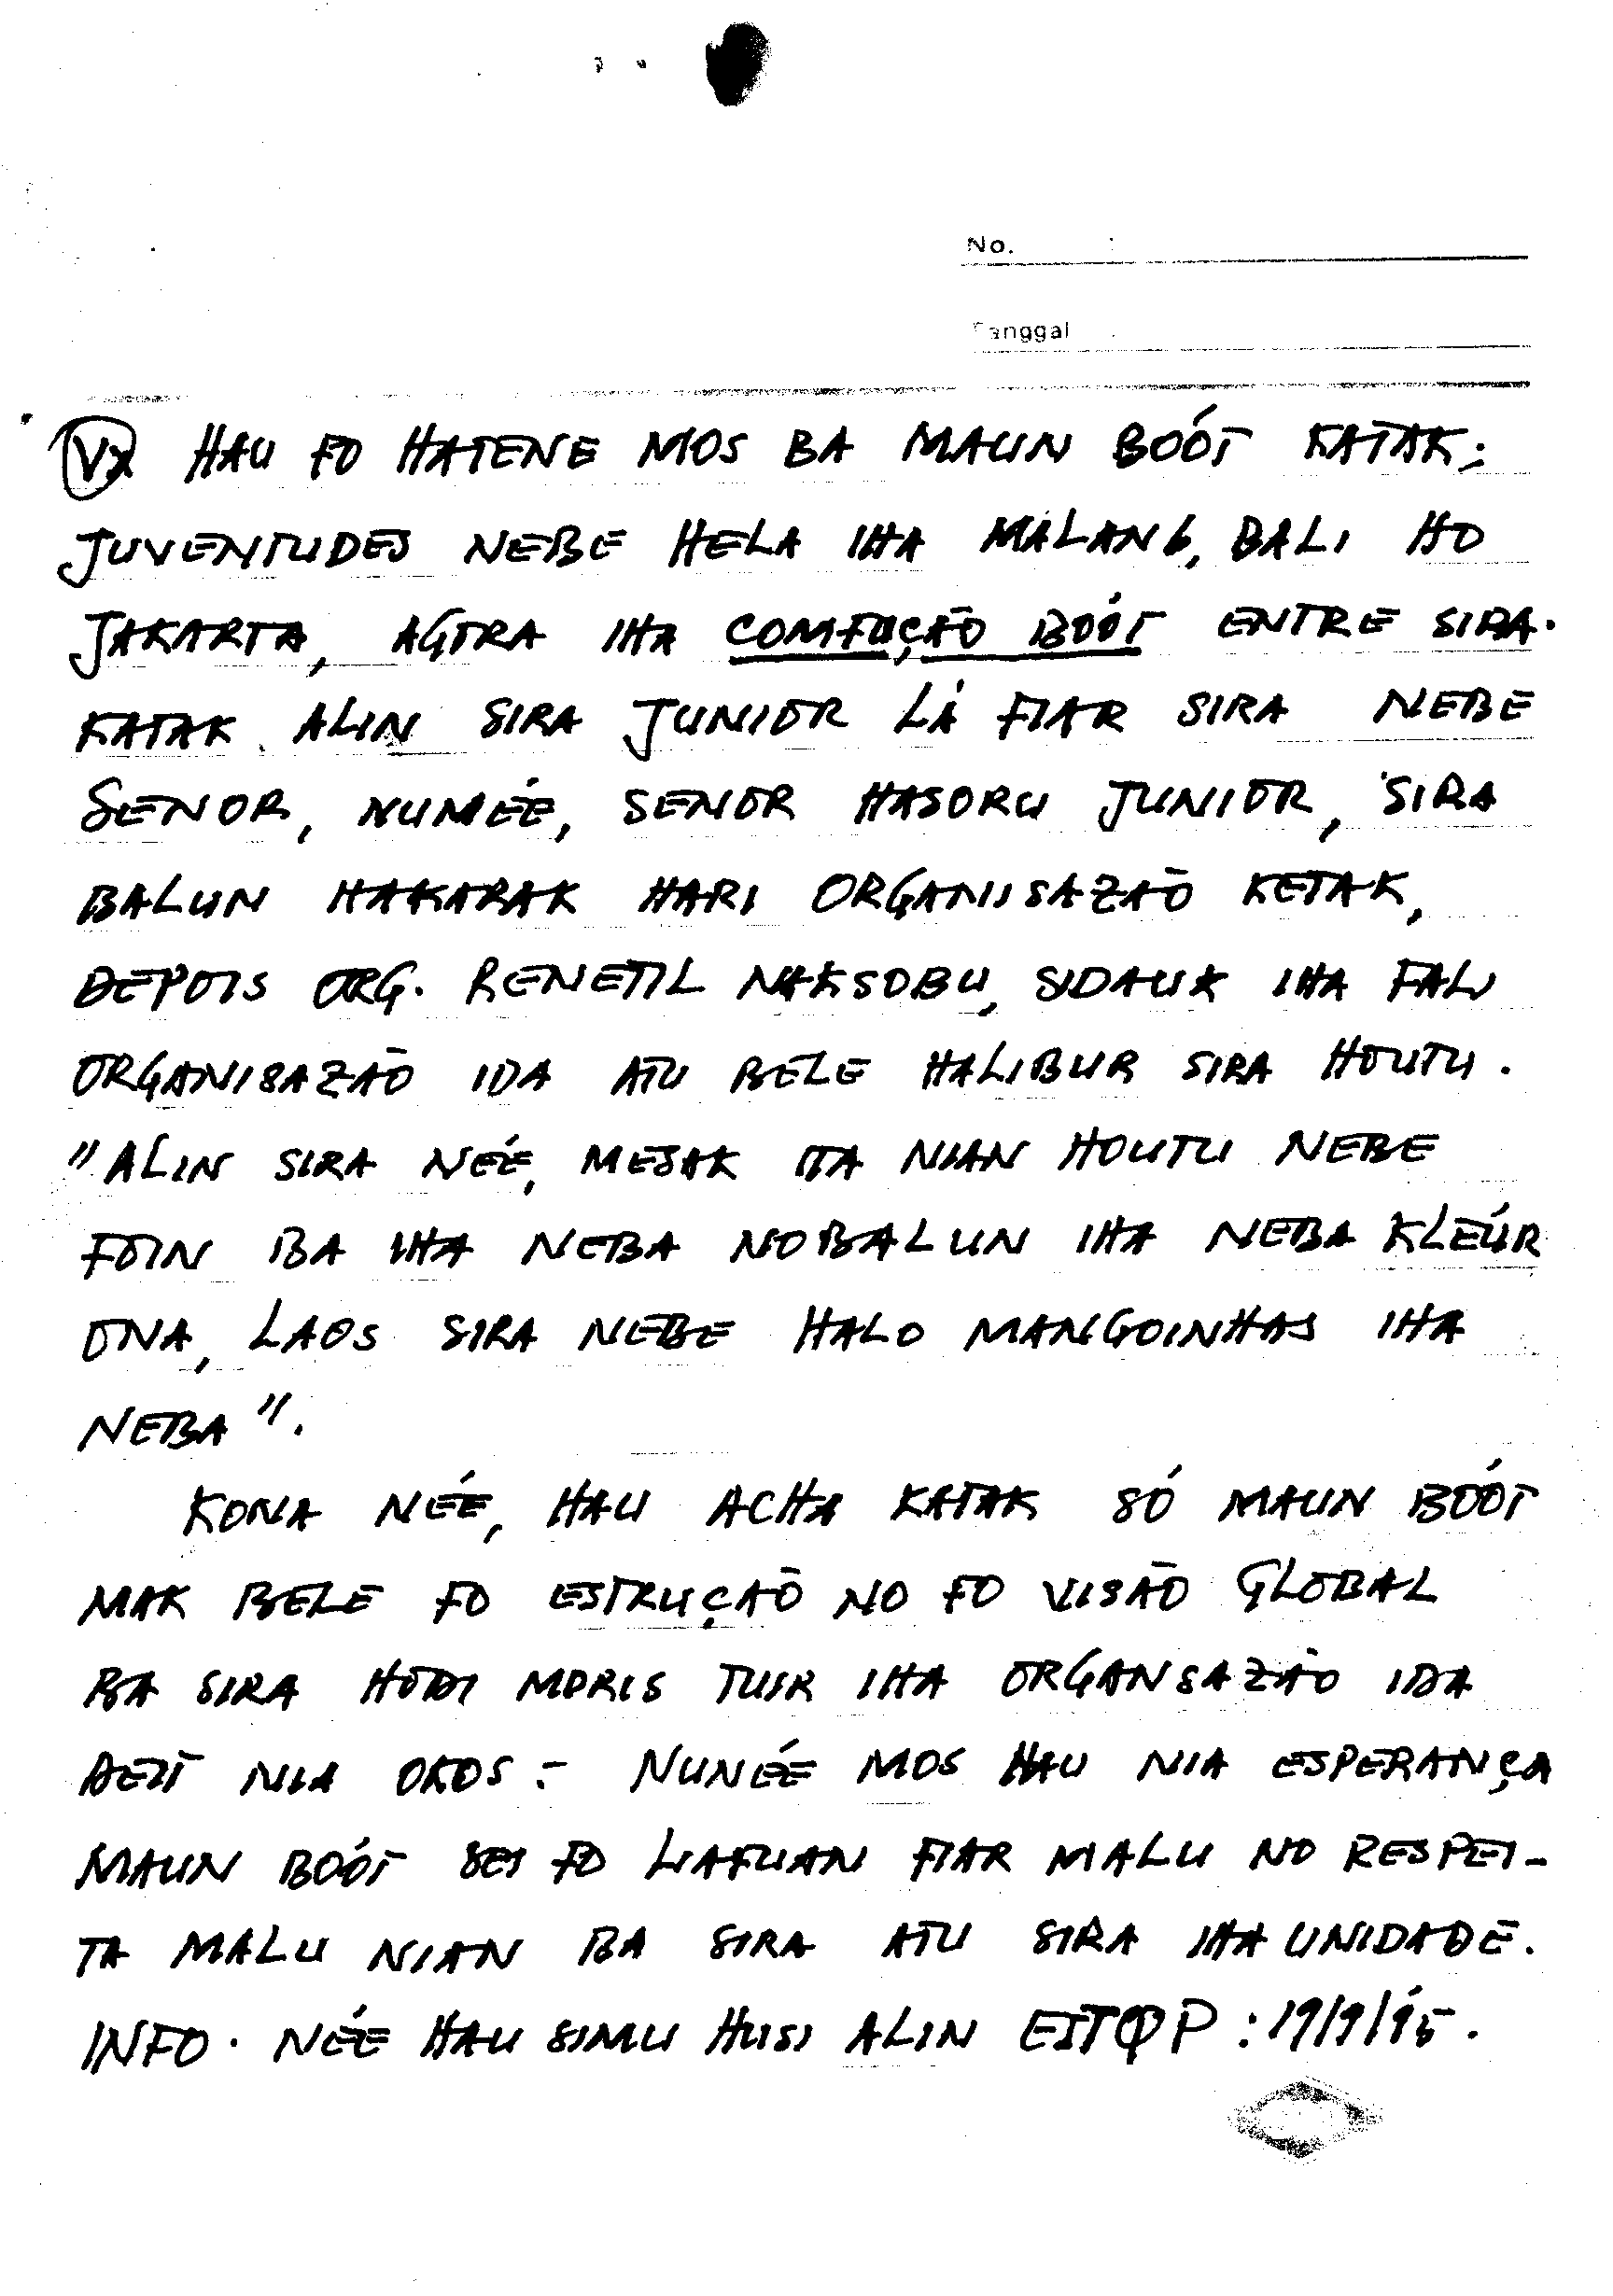 No. :
Tanggal
HAU FO HATENE MOS BA MAUN BOÓT KATAK:
JUVENTUDES NEBE HELA IHA MALANG, BALI HO
JAKARTA, AGORA IHA COMFUÇÃO BOÓT ENTRE SIRA.
KATAK ALIN SIRA JUNIOR LÁ FIAR SIRA NEBE
SENOR, NUMÉE, SENOR HASORU JUNIOR, SIRA
BALUN HAKARAK HARI ORGANISAZAÕ KETAK,
DEPOIS ORG. RENETIL NAKSOBU, SIDAUK IHA FALI
ORGANISAZAÕ IDA ATU BELE HALIBUR SIRA HOUTU.
"ALIN SIRA NÉE, MESAK ITA NIAN HOUTU NEBE
FOIN BA IHA NEBA NO BALUN IHA NEBA KLEÚR
ONA, LAOS SIRA NEBE HALO MANGOINHAS IHA
NEBA".
KONA NÉE, HAU ACHA KATAK SÓ MAUN BOÓT
MAK BELE FO ESTRUÇAÕ NO FO VISÃO GLOBAL
BA SIRA HODI MORIS TUIR IHA ORGANSAZÃO IDA
DEIT NIA OKOS :- NUNÉE MOS HAU NIA ESPERANÇA
MAUN BOÓT SEI FO LIAFUAN FIAR MALU NO RESPEI-
TA MALU NIAN BA SIRA ATU SIRA IHA UNIDADE.
INFO. NÉE HAU SIMU HUSI ALIN : 19/9/95.